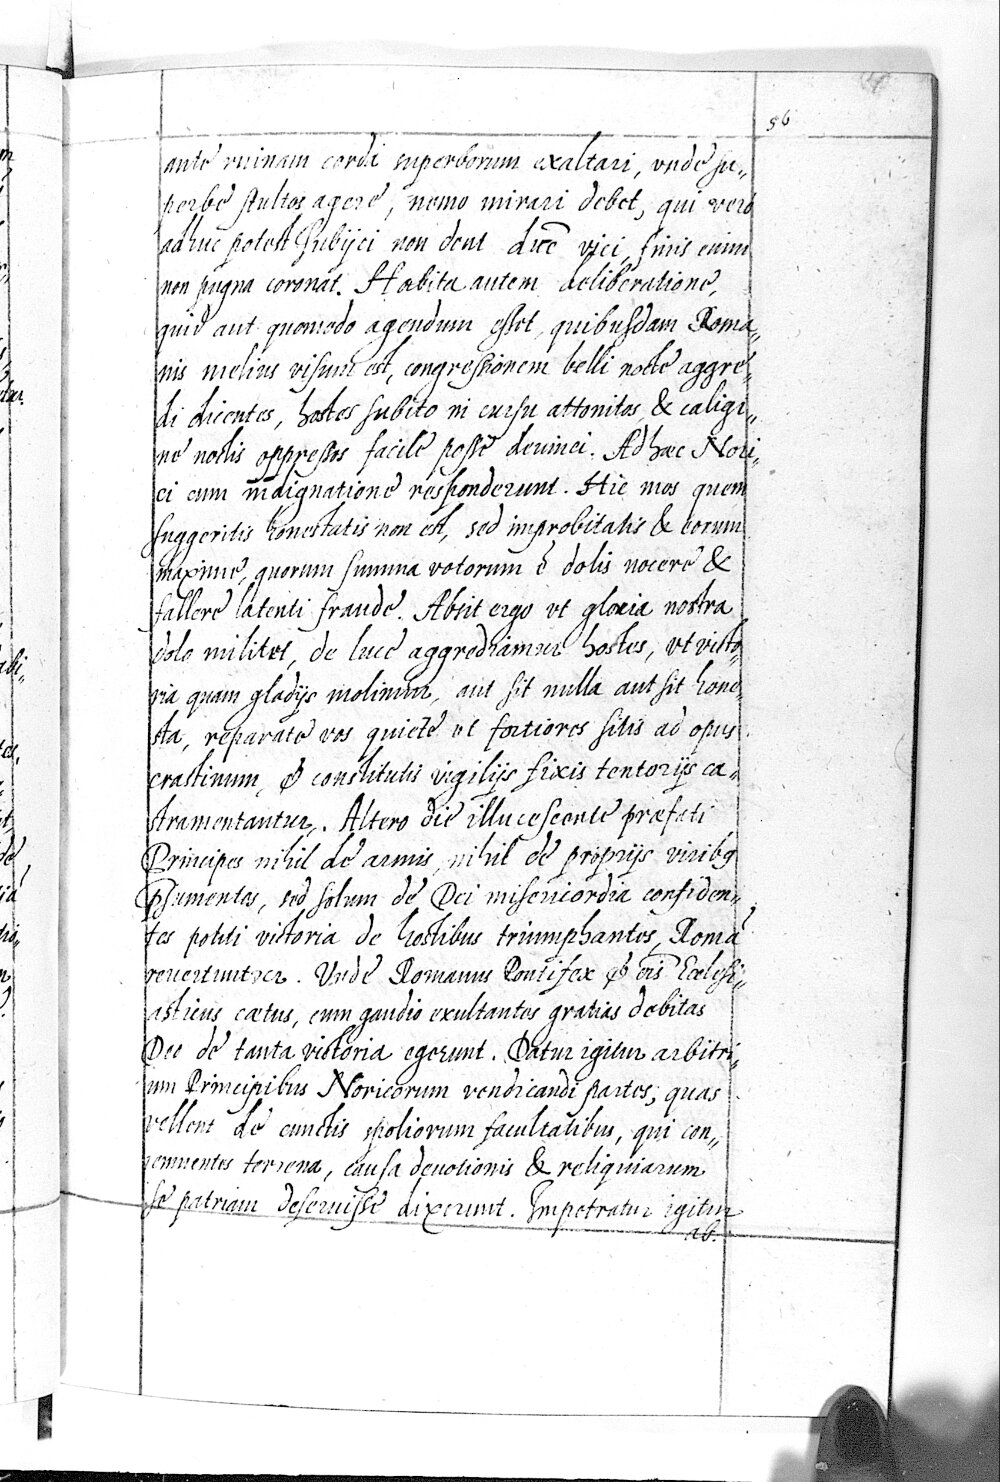 56
ante ruinam corda superborum exaltari, vnde su„
perbe stultos agere, nemo mirari debet, qui vero
adhuc potest subijci non dent dice vici, finis enim
non pugna coronat. Habita autem deliberatione,
quid aut quomodo agendum esset, quibusdam Roma„
nis melius visum est, congressionem belli nocte aggre„
di dicentes, hostes subito in cursu attonitos & caligi„
ne noctis oppressos facile posse deuinci. Ad haec Nori„
ci cum indignatione responderunt. Hic mos quem
suggeritis honestatis non est, sed improbitatis & eorum
maxime, quorum summa votorum ē dolis nocere &
fallere latenti fraude. Absit ergo vt gloria nostra
dolo militet, de luce aggrediamur hostes, vt victo„
ria quam gladijs molimur, aut sit nulla aut sit hone„
sta, reparate vos quiete vt fortiores sitis ad opus
crastinum, & constitutis vigilijs fixis tentorijs ca„
stramentantur. Altero die illucescente praefati
Principes nihil de armis, nihil de proprijs viribq
p̄sumentes, sed solum de Dei misericordia confiden„
tes potiti victoria de hostibus triumphantes, Romā
reuertuntur. Unde Romanus Pontifex & oīs Ecclesi„
asticus caetus, cum gaudio exultantes gratias debitas
Deo de tanta victoria egerunt. Datur igitur arbitri„
um Principibus Noricorum vendicandi partes, quas
vellent de cunctis spoliorum facultatibus, qui con„
temnentes terrena, causa deuotionis & reliquiarum
se patriam deseruisse dixerunt. Impetratur igitur
ab.